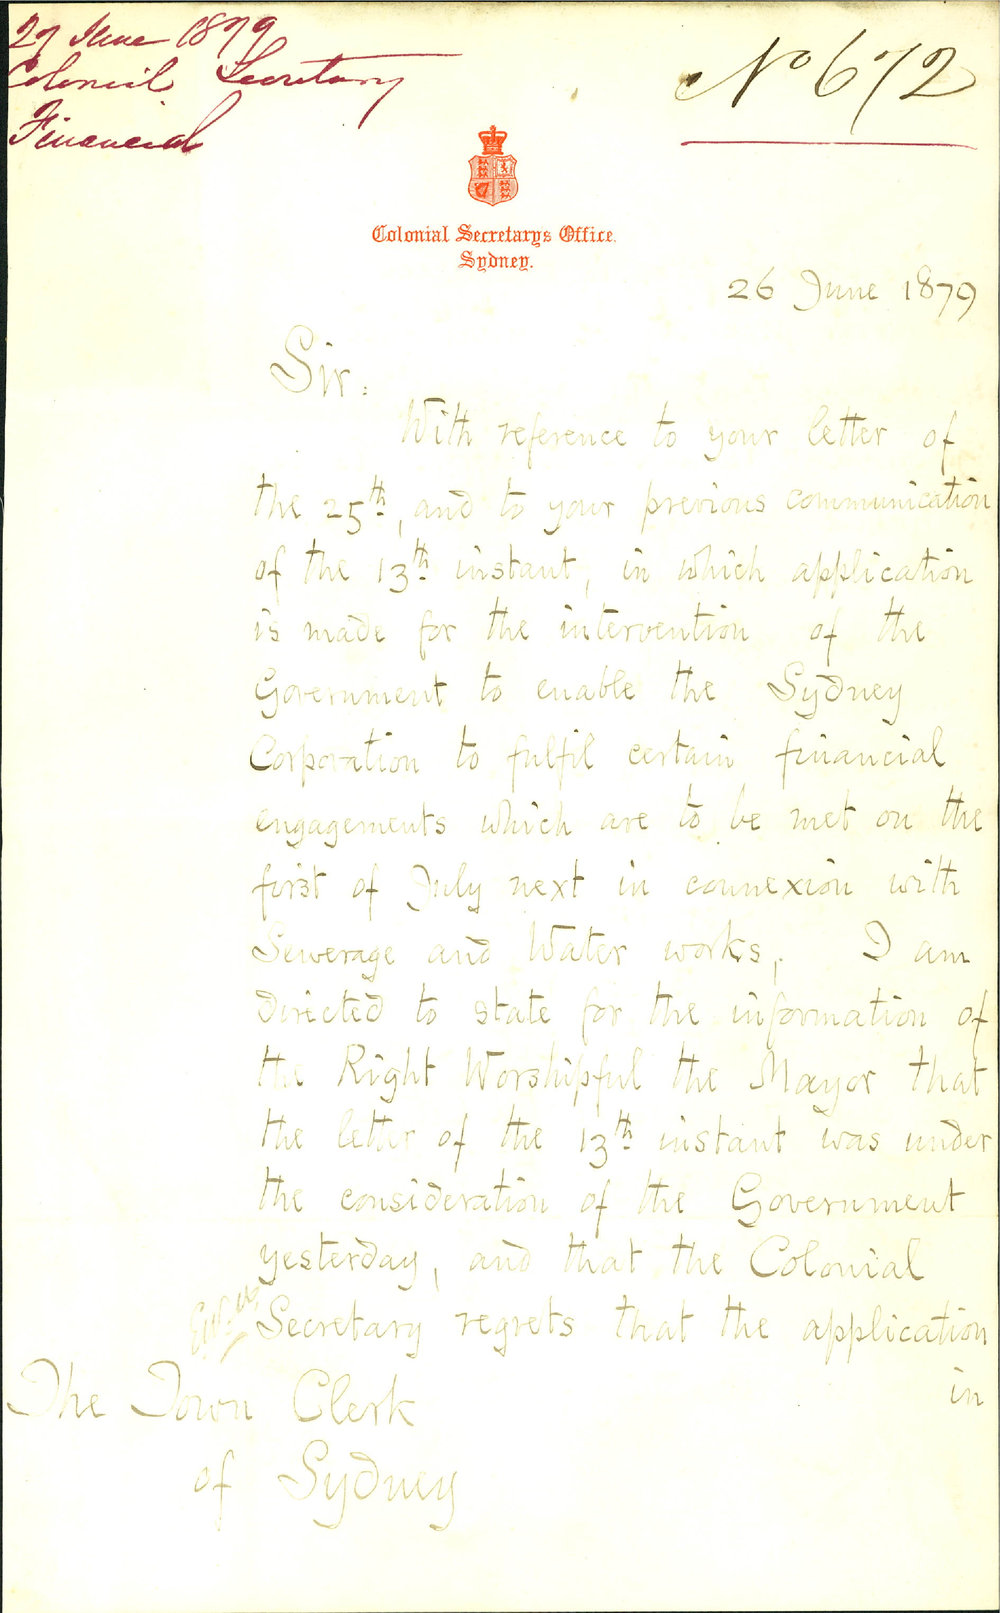 27 June 1879
Colonial Secretary
Financial
No 672
Colonial Secretarys Office.
Sydney.
26 June 1879
Sir.
With reference to your letter of
the 25th, and to your previous communication
of the 13th instant, in which application
is made for the intervention of the
Government to enable the Sydney
Corporation to fulfil certain financial
engagements which are to be met on the
first of July next in connexion with
Sewerage and Water works, I am
directed to state for the information of
the Right Worshipful the Mayor that
the letter of the 13th instant was under
the consideration of the Government
yesterday, and that the Colonial
Secretary regrets that the application
in
The Town Clerk
of Sydney